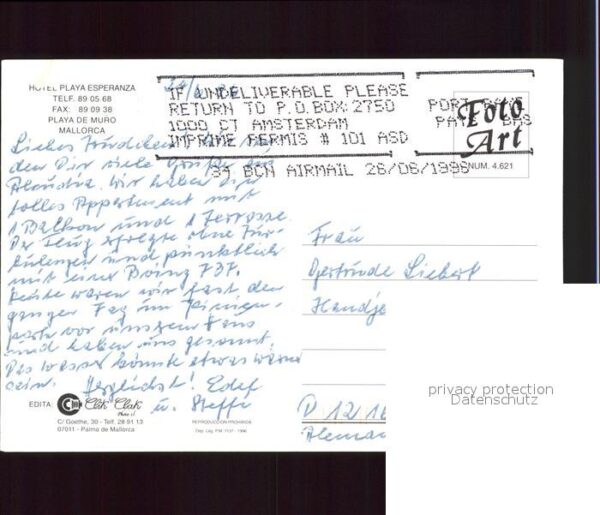 HOTEL PLAYA ESPERANZA
TELF. 89 05 68
FAX: 89 09 38
PLAYA DE MURO
MALLORCA
IF UNDELIVERABLE PLEASE
RETURN TO P.O.BOX: 2750
1000 CT AMSTERDAM
IMPRIME PERMIS # 101 ASD
PORT PAYE
PAYS BAS
Foto
Art
NUM. 4.621
34 BCN AIRMAIL 26/06/1998
Liebes
den Dir viele Grüße aus
Alcudia. Wir haben ein
tolles Appartment mit
1 Balkon und 1 Terrasse.
Der Flug erfolgte ohne
und pünktlich
mit einer Boing 737.
Heute waren wir fast den
ganzen Tag im Pinien
park vor unserem Haus
und haben uns gesonnt.
Das Wasser könnte etwas wärmer
sein. Herzlichst! Edel
u. Steffi
Frau
Gertrude Liebert
Handje
D 1216
Aleman
EDITA:
Clik Clak
C/ Goethe, 30 - Telf. 28 91 13
07011 - Palma de Mallorca
REPRODUCCION PROHIBIDA
Dep. Leg. P.M. 1137 - 1996
privacy protection
Datenschutz